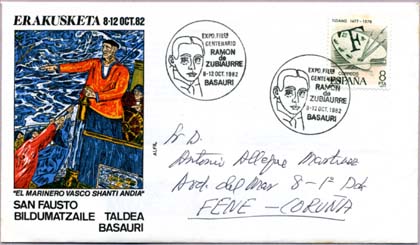 ERAKUSKETA 8-12 OCT. 82
"EL MARINERO VASCO SHANTI ANDIA"
SAN FAUSTO
BILDUMATZAILE TALDEA
BASAURI
ALFIL
EXPO. FILCA
CENTENARIO
RAMON
de
ZUBIAURRE
8-12 OCT. 1982
BASAURI
EXPO. FILCA
CENTENARIO
RAMON
de
ZUBIAURRE
8-12 OCT. 1982
BASAURI
TIZIANO 1477-1576
CORREOS
ESPAÑA
8
PTA
Sr D.
Antonio Allegue Martinez
Avd. del Mar 8-1º
FENE - CORUÑA